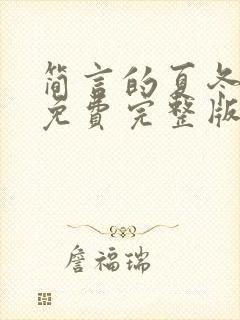 简言的夏冬
免费完整版
詹福瑞